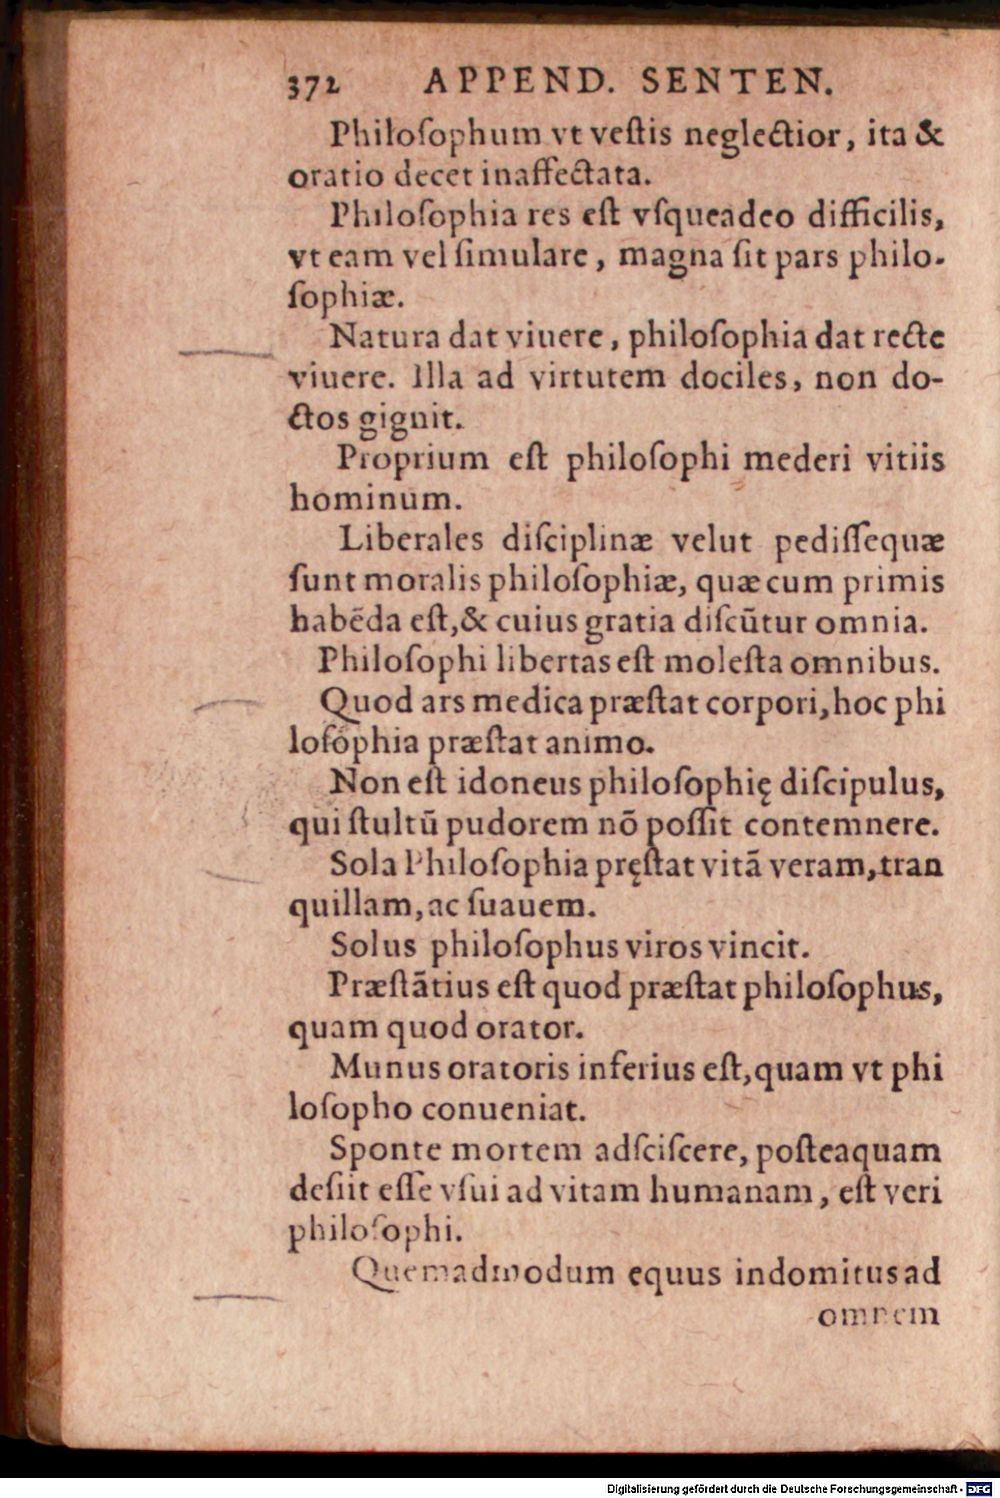 372 APPEND. SENTEN.
Philoſophum vt veſtis neglectior, ita &
oratio decet inaffectata.
Philoſophia res eſt vſqueadeo difficilis,
vt eam vel ſimulare, magna ſit pars philo-
ſophiæ.
Natura dat viuere, philoſophia dat recte
viuere. Illa ad virtutem dociles, non do-
ctos gignit.
Proprium eſt philoſophi mederi vitiis
hominum.
Liberales diſciplinæ velut pediſſequæ
ſunt moralis philoſophiæ, quæ cum primis
habēda eſt,& cuius gratia diſcūtur omnia.
Philoſophi libertas eſt moleſta omnibus.
Quod ars medica præſtat corpori,hoc phi
loſophia præſtat animo.
Non eſt idoneus philoſophię diſcipulus,
qui ſtultū pudorem nō poſſit contemnere.
Sola Philoſophia pręſtat vitā veram,tran
quillam,ac ſuauem.
Solus philoſophus viros vincit.
Præſtātius eſt quod præſtat philoſophus,
quam quod orator.
Munus oratoris inferius eſt,quam vt phi
loſopho conueniat.
Sponte mortem adſciſcere, poſteaquam
deſiit eſſe vſui ad vitam humanam, eſt veri
philoſophi.
Quemadmodum equus indomitus ad
omnem
Digitalisierung gefördert durch die Deutsche Forschungsgemeinschaft - DFG